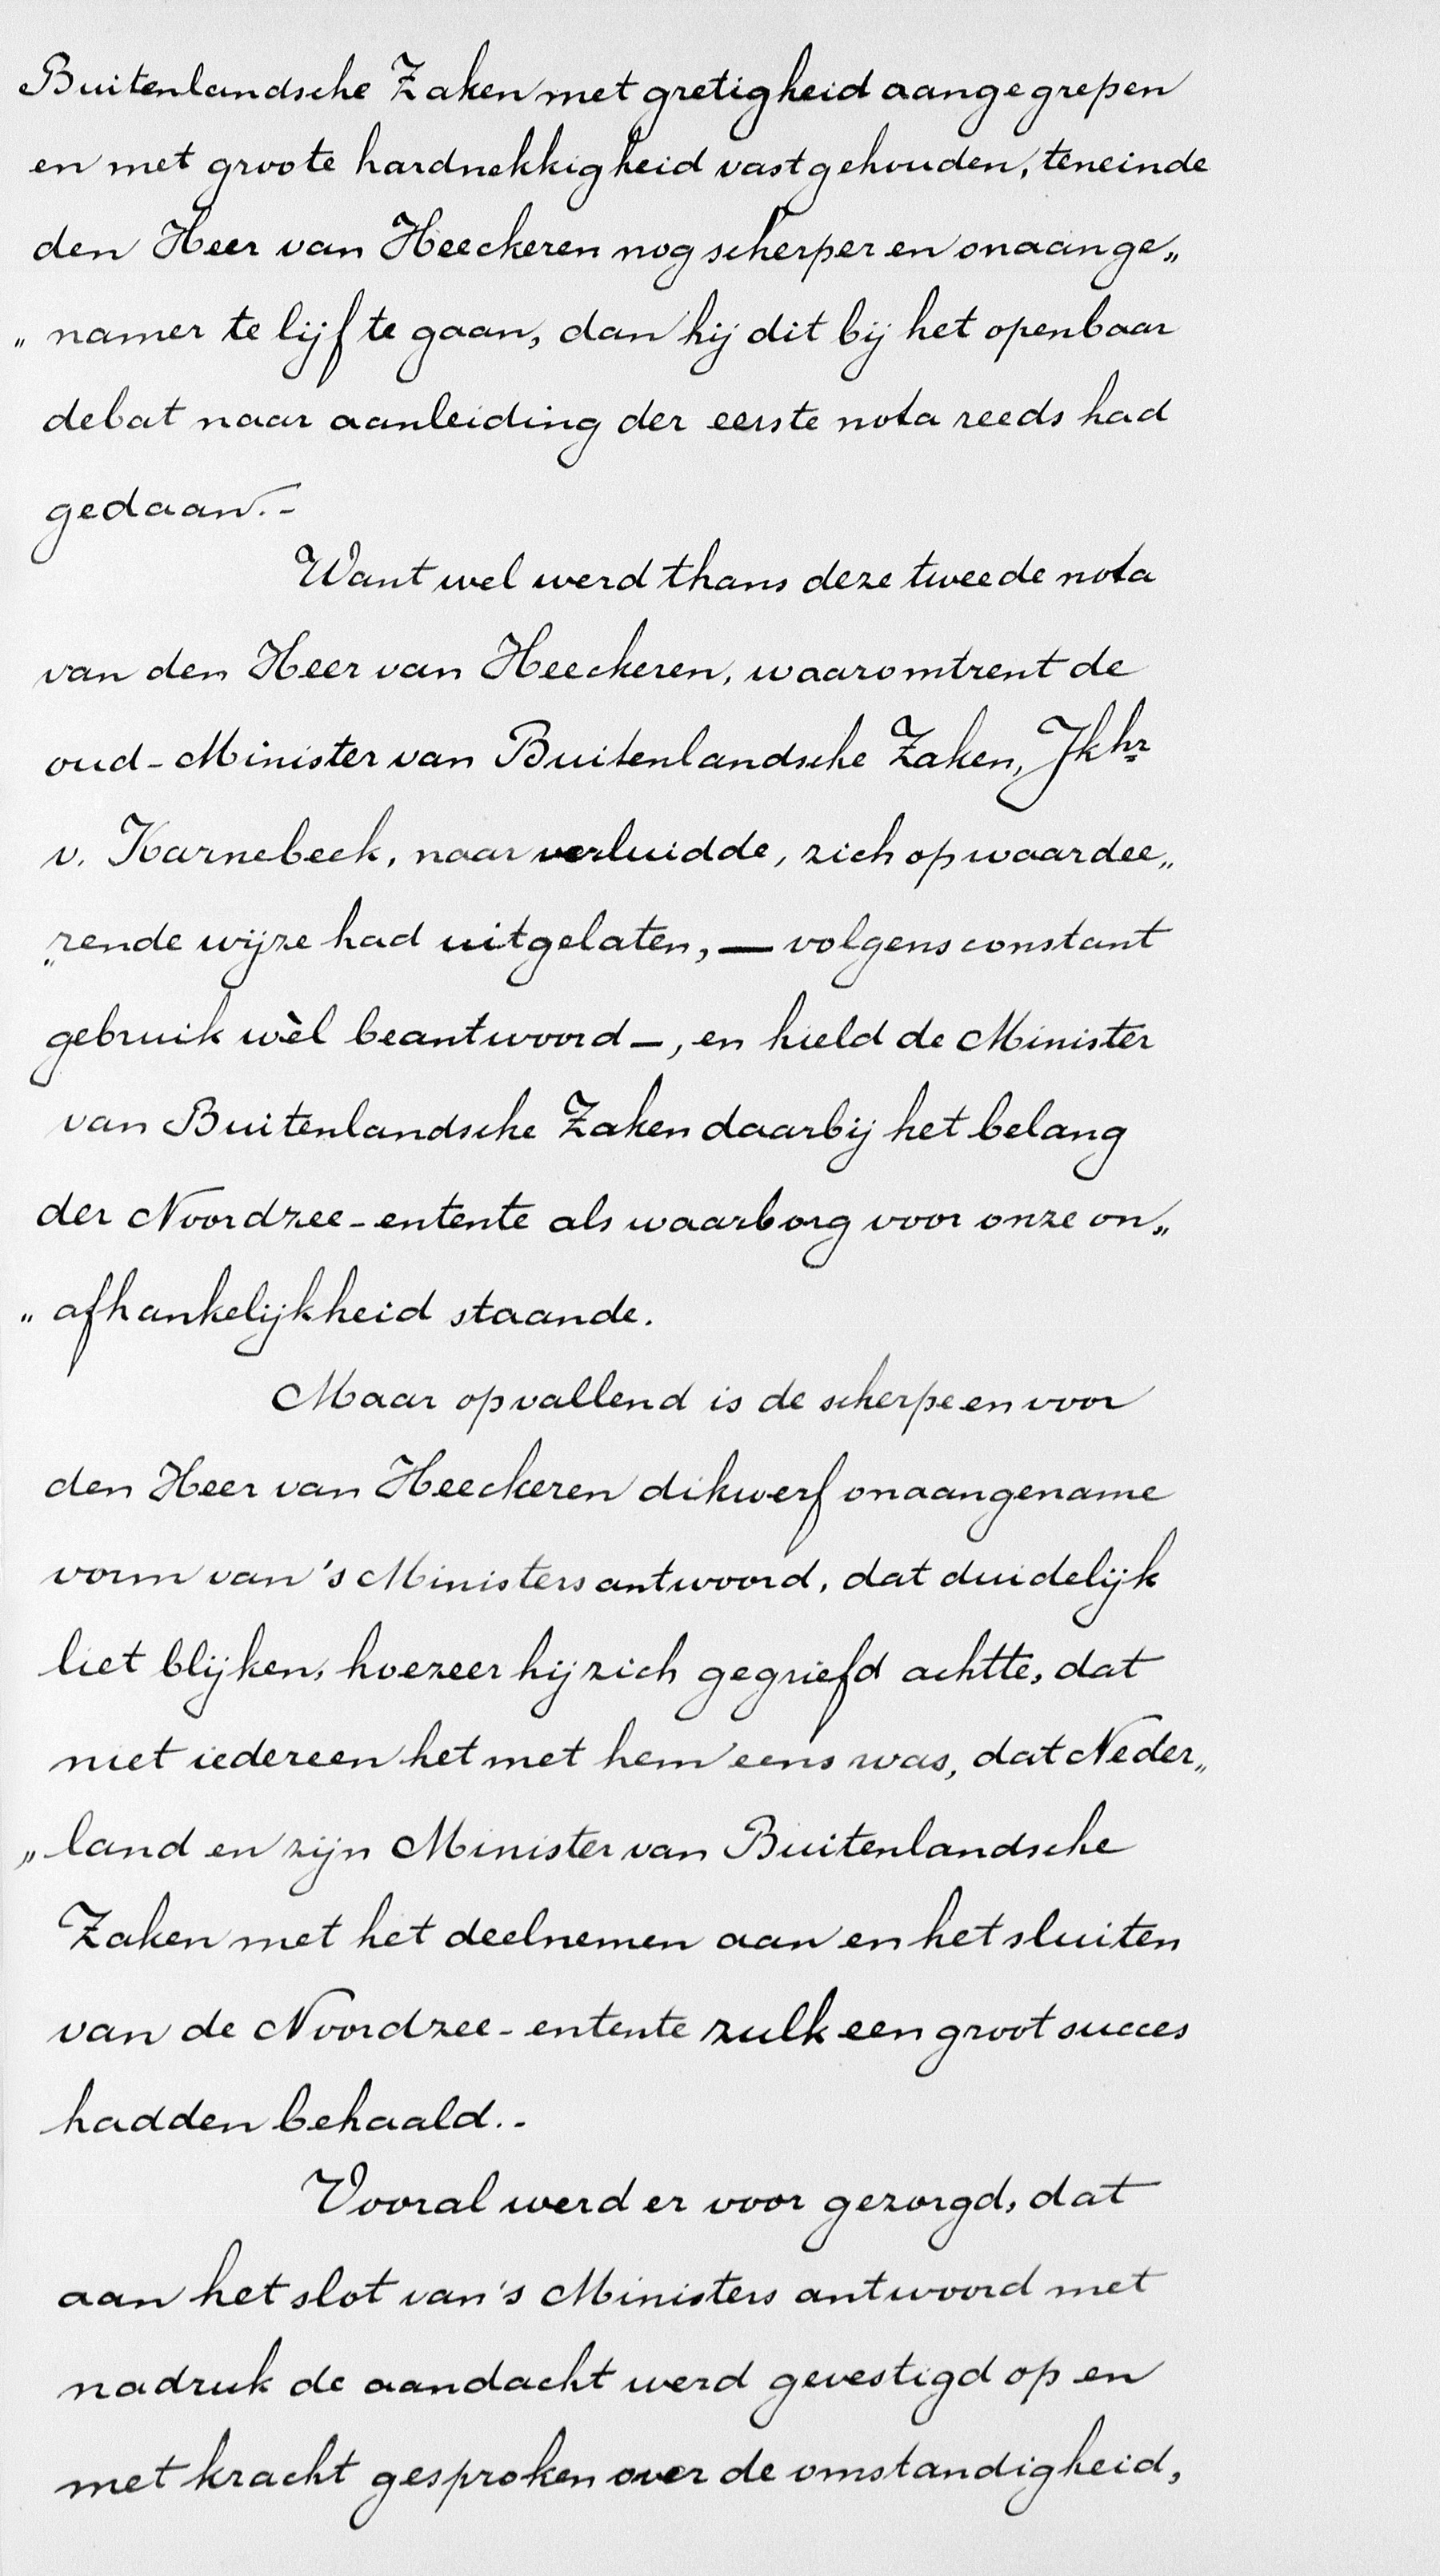 Buitenlandsche Zaken met gretigheid aangegrepen
en met groote hardnekkigheid vastgehouden, teneinde
den Heer van Heeckeren nog scherper en onaange„
„namer te lijf te gaan, dan hij dit bij het openbaar
debat naar aanleiding der eerste nota reeds had
gedaan.-
Want wel werd thans deze tweede nota
van den Heer van Heeckeren, waaromtrent de
oud-Minister van Buitenlandsche Zaken, Jkhr
v. Karnebeek, naar verluidde, zich op waardee„
„rende wijze had uitgelaten, — volgens constant
gebruik wèl beantwoord —, en hield de Minister
van Buitenlandsche Zaken daarbij het belang
der Noordzee-entente als waarborg voor onze on„
„afhankelijkheid staande.
Maar opvallend is de scherpe en voor
den Heer van Heeckeren dikwerf onaangename
vorm van 's Ministers antwoord, dat duidelijk
liet blijken, hoezeer hij zich gegriefd achtte, dat
niet iedereen het met hem eens was, dat Neder„
„land en zijn Minister van Buitenlandsche
Zaken met het deelnemen aan en het sluiten
van de Noordzee-entente zulk een groot succes
hadden behaald.-
Vooral werd er voor gezorgd, dat
aan het slot van 's Ministers antwoord met
nadruk de aandacht werd gevestigd op en
met kracht gesproken over de omstandigheid,